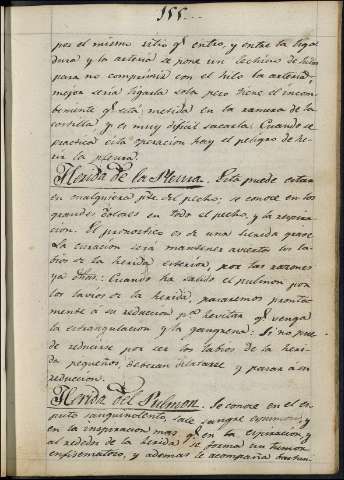 155.
por el mismo sitio qe entro, y entre la liga
dura y la arteria se pone un lechino de hilas
para no comprimir con el hilo la arteria,
mejor seria ligarla sola pero tiene el incon-
beniente qe está metida en la ranura de la
costilla, y es muy dificil sacarla. Cuando se
practica esta operacion hay el peligro de he-
rir la pleura.
Herida de la Pleura. Esta puede estar
en cualquiera pte del pecho, se conoce en los
grandes dolores en todo el pecho, y la respira-
cion. El pronostico es de una herida grave.
La curacion será mantener aviertos los la-
bios de la herida esterior, por las razones
ya dhas: Cuando ha salido el pulmon por
los lavios de la herida, pasaremos pronta-
mente á su reduccion pa hevitar qe venga
la estrangulacion y la gangrena: Si no pue
de reducirse por ser los labios de la heri-
da pequeños, deveran dilatarse y pasar á su
reduccion.
Herida del Pulmon. Se conoce en el es-
puto sanguinolento, sale sangre espumosa, y
en la inspiracion mas qe en la espiracion, y
al rededor de la herida se forma un tumor
enfisematoso, y ademas le acompaña bastan-